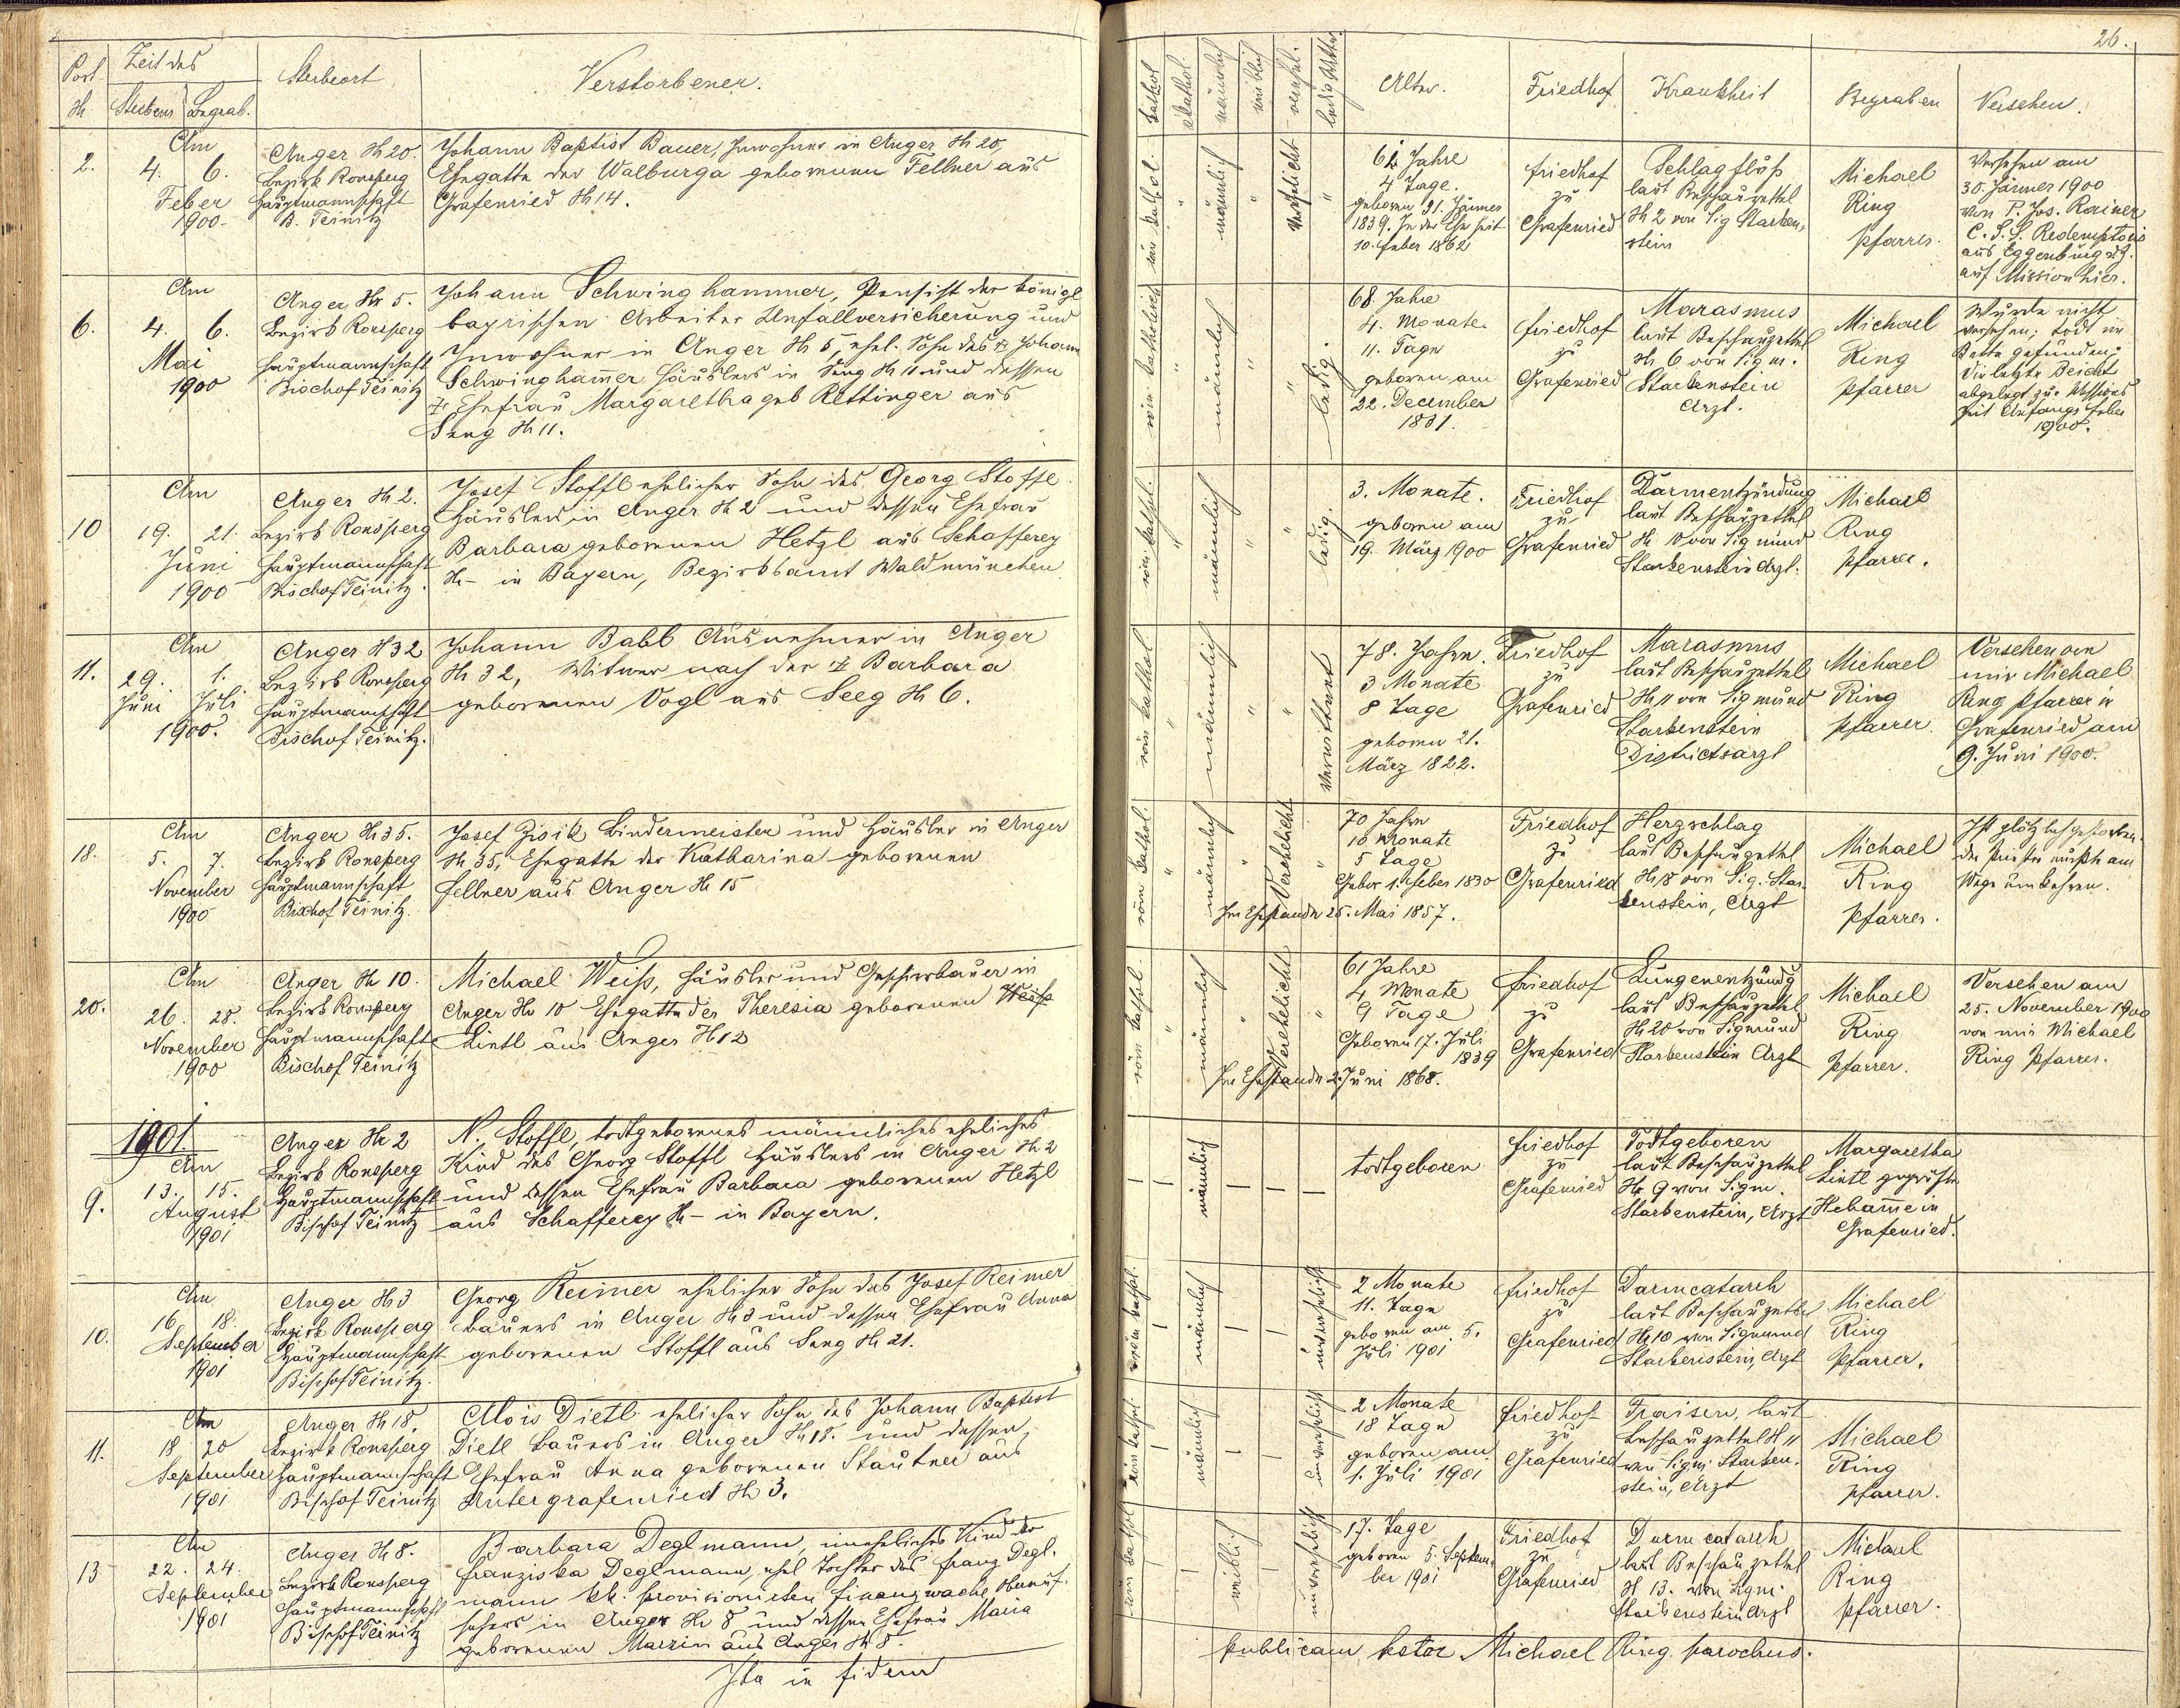 26.
Post
№
Zeit des
Sterbens Begrab.
Sterbeort
Verstorbener.
kathol
akathol
männlich
weiblich
verehel.
Alter.
Friedhof
Krankheit
Begraben
Versehen.
2.
Am
4. 6.
Feber
1900
Anger № 20.
Bezirk Ronsperg
Hauptmannschaft
B. Teinitz
Johann Baptist Bauer, Inwohner in Anger № 20,
Ehegatte der Walburga geborenen Fellner aus
Grafenried № 14.
röm kathol.
männlich
Verehelicht
61 Jahre
4 Tage.
geboren 31. Jänner
1839. In der Ehe seit
10. Feber 1862
Friedhof
zu
Grafenried
Schlagfluß
laut Beschauzettel
№ 2 von Sig Starken-
stein
Michael
Ring
Pfarrer.
Versehen am
30. Jänner 1900
von P. Jos. Rainer
C. S. S. Redemptoris
aus Eggenburg
auf Mission hier.
6.
Am
4. 6.
Mai
1900
Anger № 5.
Bezirk Ronsperg
Hauptmannschaft
Bischof Teinitz
Johann Schwinghammer, Pensist der königl
bayrischen Arbeiter Unfallversicherung und
Inwohner in Anger № 5, ehel. Sohn des † Johann
Schwinghamer Häuslers in Seeg № 11 und dessen
† Ehefrau Margaretha geb Rettinger aus
Seeg № 11.
röm katholisch
männlich
ledig.
68. Jahre
4. Monate
11. Tage
geboren am
22. December
1831.
Friedhof
zu
Grafenried
Marasmus
laut Beschauzettel
№ 6 von Sigm.
Starkenstein
Arzt.
Michael
Ring
Pfarrer
Wurde nicht
versehen; todt im
Bette gefunden;
Die letzte Beicht
abgelegt zur Missions
zeit Anfangs Feber
1900.
10
Am
19. 21.
Juni
1900
Anger № 2.
Bezirk Ronsperg
Hauptmannschaft
Bischof Teinitz.
Josef Stoffl ehelicher Sohn des Georg Stoffl
Häuslers in Anger № 2 und dessen Ehefrau
Barbara geborenen Hetzl aus Schafferey
№ – in Bayern, Bezirksamt Waldmünchen
röm kathol.
männlich
ledig.
3. Monate.
geboren am
19. März 1900
Friedhof
zu
Grafenried
Darmentzündung
laut Beschauzettel
№ 10 von Sigmund
Starkenstein Arzt.
Michael
Ring
Pfarrer.
11.
Am
29. 1.
Juni Juli
1900.
Anger № 32
Bezirk Ronsperg
Hauptmannschaft
Bischof Teinitz.
Johann Babl Ausnehmer in Anger
№ 32, Witwer nach der † Barbara
geborenen Vogl aus Seeg № 6.
röm kathol
männlich
Verwittwet
78. Jahre.
3 Monate
8 Tage
geboren 21.
März 1822.
Friedhof
zu
Grafenried
Marasmus
laut Beschauzettel
№ 11 von Sigmund
Starkenstein
Districtsarzt
Michael
Ring
Pfarrer
Versehen von
mir Michael
Ring Pfarrer in
Grafenried am
9. Juni 1900.
18.
Am
5. 7.
November
1900
Anger № 35.
Bezirk Ronsperg
Hauptmannschaft
Bischof Teinitz.
Josef Zisik Bindermeister und Häusler in Anger
№ 35, Ehegatte der Katharina geborenen
Fellner aus Anger № 15
röm kathol.
männlich
Verehelicht
70 Jahre
10 Monate
5 Tage
Gebor 1. Feber 1830
Im Ehestande 25. Mai 1857.
Friedhof
zu
Grafenried
Herzschlag
laut Beschauzettel
№ 18 von Sig. Star-
kenstein, Arzt
Michael
Ring
Pfarrer.
Ist plötzlich gestorben.
der Priester mußte am
Wege umkehren.
20.
Am
26. 28.
November
1900
Anger № 10.
Bezirk Ronsperg
Hauptmannschaft
Bischof Teinitz
Michael Weiß, Häusler und Geschirrbauer in
Anger № 10 Ehegatte der Theresia geborenen Weiß
Lintl aus Anger № 12
röm kathol.
männlich
Verehelicht
61 Jahre
4 Monate
9 Tage
Geboren 17. Juli
1839
Im Ehestande 2. Juni 1868.
Friedhof
zu
Grafenried
Lungenentzündg
laut Beschauzettel
№ 20 von Sigmund
Starkenstein Arzt
Michael
Ring
Pfarrer.
Versehen am
25. November 1900
von mir Michael
Ring Pfarrer.
1901.
9.
Am
13. 15.
August
1901
Anger № 2
Bezirk Ronsperg
Hauptmannschaft
Bischof Teinitz
N. Stoffl, todtgeborenes männliches eheliches
Kind des Georg Stoffl Häuslers in Anger № 2
und dessen Ehefrau Barbara geborenen Hetzl
aus Schafferey № – in Bayern.
männlich
todtgeboren
Friedhof
zu
Grafenried
Todtgeboren
laut Beschauzettel
№ 9 von Sigm.
Starkenstein, Arzt
Margaretha
Lintl geprüfte
Hebamme in
Grafenried.
10.
Am
16 18.
September
1901
Anger № 3
Bezirk Ronsperg
Hauptmannschaft
Bischof Teinitz.
Georg Reimer ehelicher Sohn des Josef Reimer
Bauers in Anger № 3 und dessen Ehefrau Anna
geborenen Stoffl aus Seeg № 21.
röm kathol.
männlich
unverehelicht
2 Monate
11. Tage
geboren am 5.
Juli 1901
Friedhof
zu
Grafenried
Darmcatarrh
laut Beschauzettel
№ 10 von Sigmund
Starkenstein, Arzt
Michael
Ring
Pfarrer.
11.
Am
18 20
September
1901
Anger № 18.
Bezirk Ronsperg
Hauptmannschaft
Bischof Teinitz
Alois Dietl ehelicher Sohn des Johann Baptist
Dietl Bauers in Anger № 18. und dessen
Ehefrau Anna geborenen Stautner aus
Untergrafenried № 3.
röm kathol.
männlich
unverehelicht
2 Monate
18 Tage
geboren am
1. Juli 1901
Friedhof
zu
Grafenried
Fraisen, laut
Beschauzettel № 11
von Sigm. Starken-
stein, Arzt
Michael
Ring
Pfarrer.
13
Am
22. 24.
September
1901
Anger № 8.
Bezirk Ronsperg
Hauptmannschaft
Bischof Teinitz
Barbara Deglmann, uneheliches Kind der
Franziska Deglmann, ehel Tochter des Franz Degl-
mann kk. provisionirten Finanzwache Oberauf-
sehers in Anger № 8 und dessen Ehefrau Maria
geborenen Marzin aus Anger № 8.
röm kathol
weiblich
unverehelicht
17. Tage
geboren 5. Septem-
ber 1901
Friedhof
zu
Grafenried
Darmcatarrh
laut Beschauzettel
№ 13. von Sigm.
Starkenstein Arzt
Michael
Ring
Pfarrer.
Ita in fidem
publicam testor Michael Ring parochus.